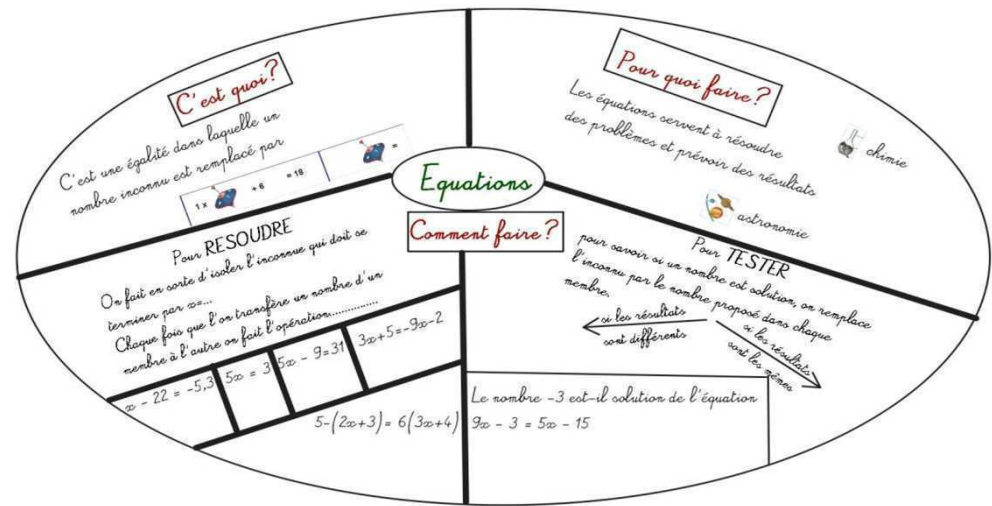 C'est quoi?
C'est une égalité dans laquelle un
nombre inconnu est remplacé par
1 x + 6 = 18
=
Pour quoi faire?
Les équations servent à résoudre
des problèmes et prévoir des résultats
chimie
astronomie
Equations
Comment faire?
Pour RESOUDRE
On fait en sorte d'isoler l'inconnue qui doit se
terminer par x=...
Chaque fois que l'on transfère un nombre d'un
membre à l'autre on fait l'opération................
x - 22 = -5,3
5x = 3
5x - 9=31
3x+5=-9x-2
5-(2x+3)= 6(3x+4)
Pour TESTER
pour savoir si un nombre est solution, on remplace
l'inconnu par le nombre proposé dans chaque
membre.
si les résultats
sont différents
si les résultats
sont les mêmes
Le nombre -3 est-il solution de l'équation
9x - 3 = 5x - 15